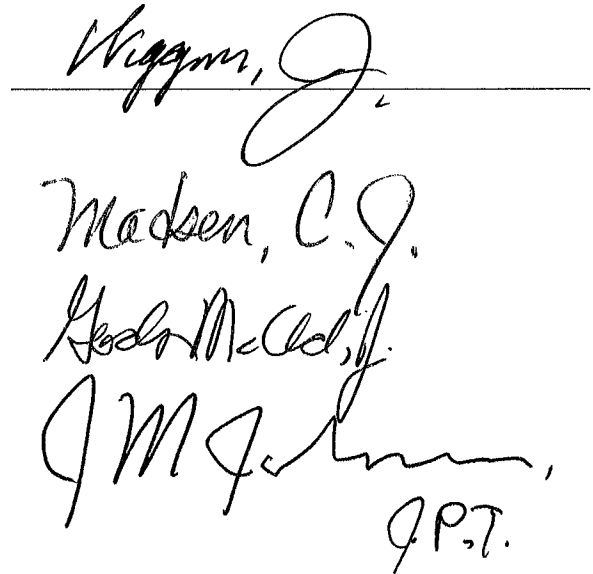 Wiggins, J.
Madsen, C.J.
Gordon McCloud, J.
J M Johnson,
J.P.T.